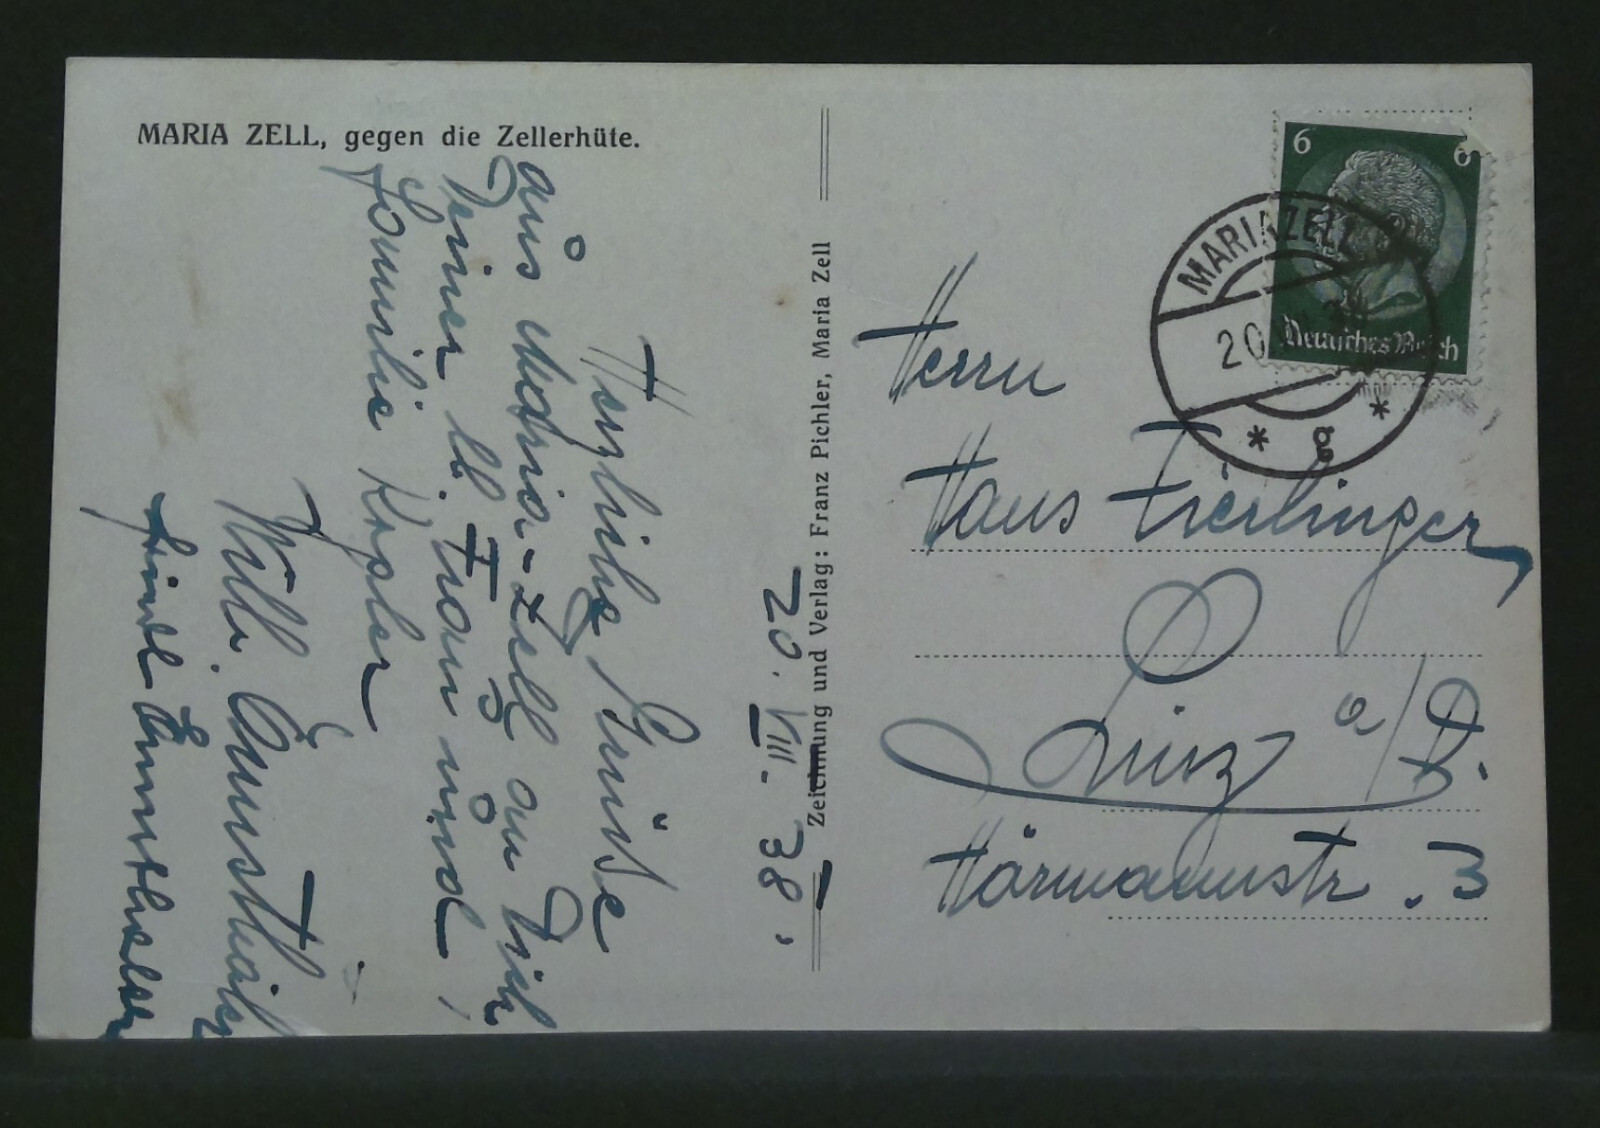 MARIA ZELL, gegen die Zellerhüte.
20. VIII. 38.
Herzliche Grüße
aus Maria-Zell an Dich
Deiner lb. Frau und
Familie Kogler
Willi
Zeichnung und Verlag: Franz Pichler, Maria Zell
6 6
Deutsches Reich
MARIAZELL
20
* g *
Herrn
Hans Zierlinger
Linz a/D.
Hörmannstr. 3